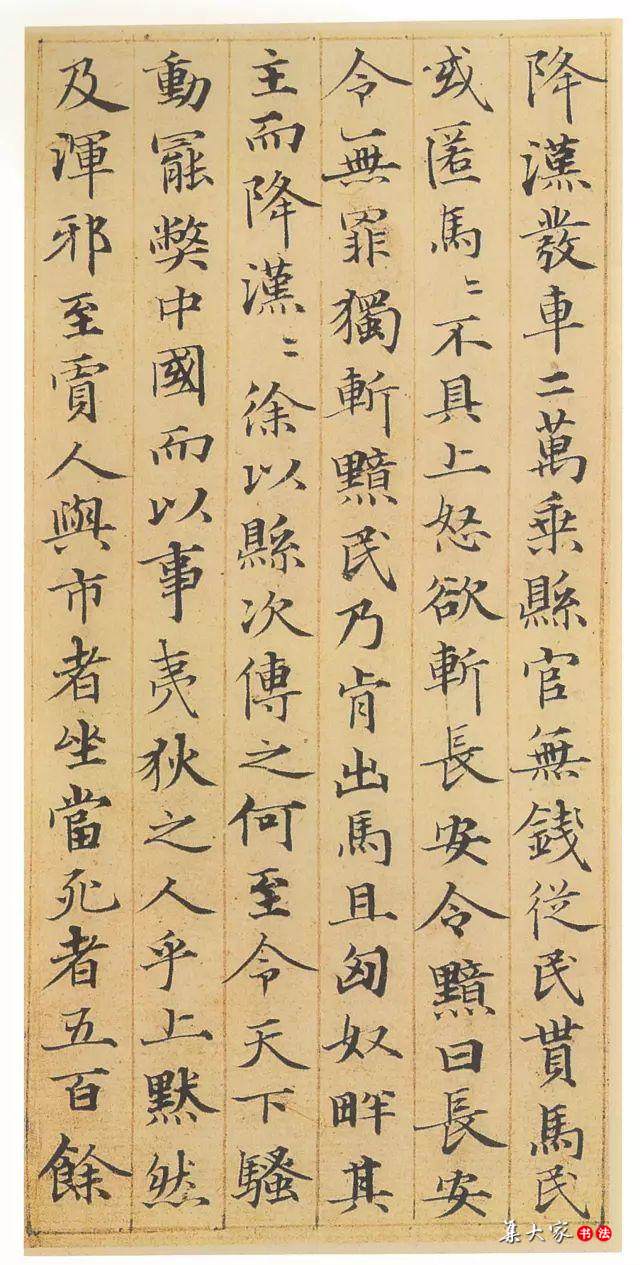 降漢發車二萬乗縣官無錢從民貰馬民
或匿馬〻不具上怒欲斬長安令黯曰長安
令無罪獨斬黯民乃肯出馬且匈奴畔其
主而降漢〻徐以縣次傳之何至令天下騷
動罷弊中國而以事夷狄之人乎上黙然
及渾邪至賈人與市者坐當死者五百餘
集大家书法